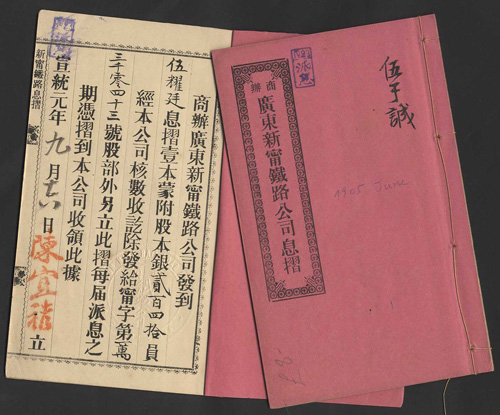 商辦廣東新甯鐵路公司發到
伍耀廷息摺壹本蒙附股本銀貳百四拾員
經本公司核數收訖除發給甯字第萬
三千零四十三號股部外另立此摺每届派息之
期憑摺到本公司收領此據
宣統元年九月十六日陳宜禧立
新甯鐵路息摺
伍于誠
商辦
廣東新甯鐵路公司息摺
1905 June